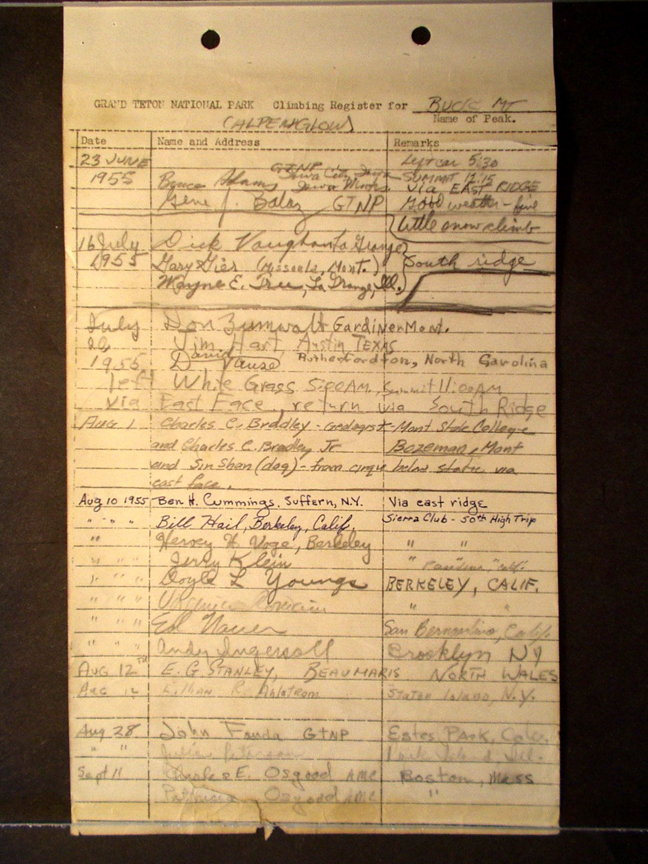 GRAND TETON NATIONAL PARK Climbing Register for BUCK MT
(ALPENGLOW) Name of Peak.
Date Name and Address Remarks
23 JUNE GTNP Lv car 5:30
1955 Bruce Adams, Iowa City, Iowa SUMMIT 12:15
via EAST RIDGE
Gene J. Balaz GTNP Good weather - fine
little snow climb
16 July Dick Vaughan La Grange
1955 Gary Gier (Missoula, Mont.) South ridge
Wayne E. La Grange, Ill.
July Don Zumwalt Gardiner Mont.
Jim Hart Austin TEXAS
1955 David Vause Rutherfordton, North Carolina
left White Grass 5:00 AM, Summit 11:00 AM
via East Face, return via South Ridge
Aug 1 Charles C. Bradley - Geologist - Mont State College
and Charles C. Bradley Jr Bozeman, Mont
and Sin Shan (dog) - from cirque below static via
east face.
Aug 10 1955 Ben H. Cummings, Suffern, N.Y. Via east ridge
" " " Bill Hail, Berkeley, Calif. Sierra Club - 50th High Trip
" Hervey H. Voge, Berkeley " "
" " " Jerry Klein
" " " Doyle L Youngs BERKELEY, CALIF.
" " " "
" " " Ed San Bernardino, Calif.
" " " Andy Ingersoll Brooklyn NY
AUG 12TH E. G. STANLEY, BEAUMARIS NORTH WALES
AUG 12 R. Ahlstrom STATEN ISLAND, N.Y.
Aug 28 John Fonda GTNP Estes Park, Colo.
" "
Sept 11 E. Osgood AMC Boston, Mass
Patricia Osgood AMC "